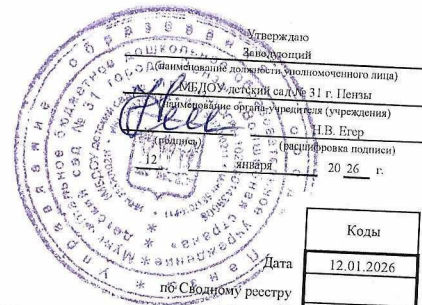 Утверждаю
Заведующий
(наименование должности уполномоченного лица)
МБДОУ детский сад № 31 г. Пензы
(наименование органа-учредителя (учреждения)
Н.В. Егер
(подпись) (расшифровка подписи)
12 января 20 26 г.
Коды
Дата 12.01.2026
по Сводному реестру